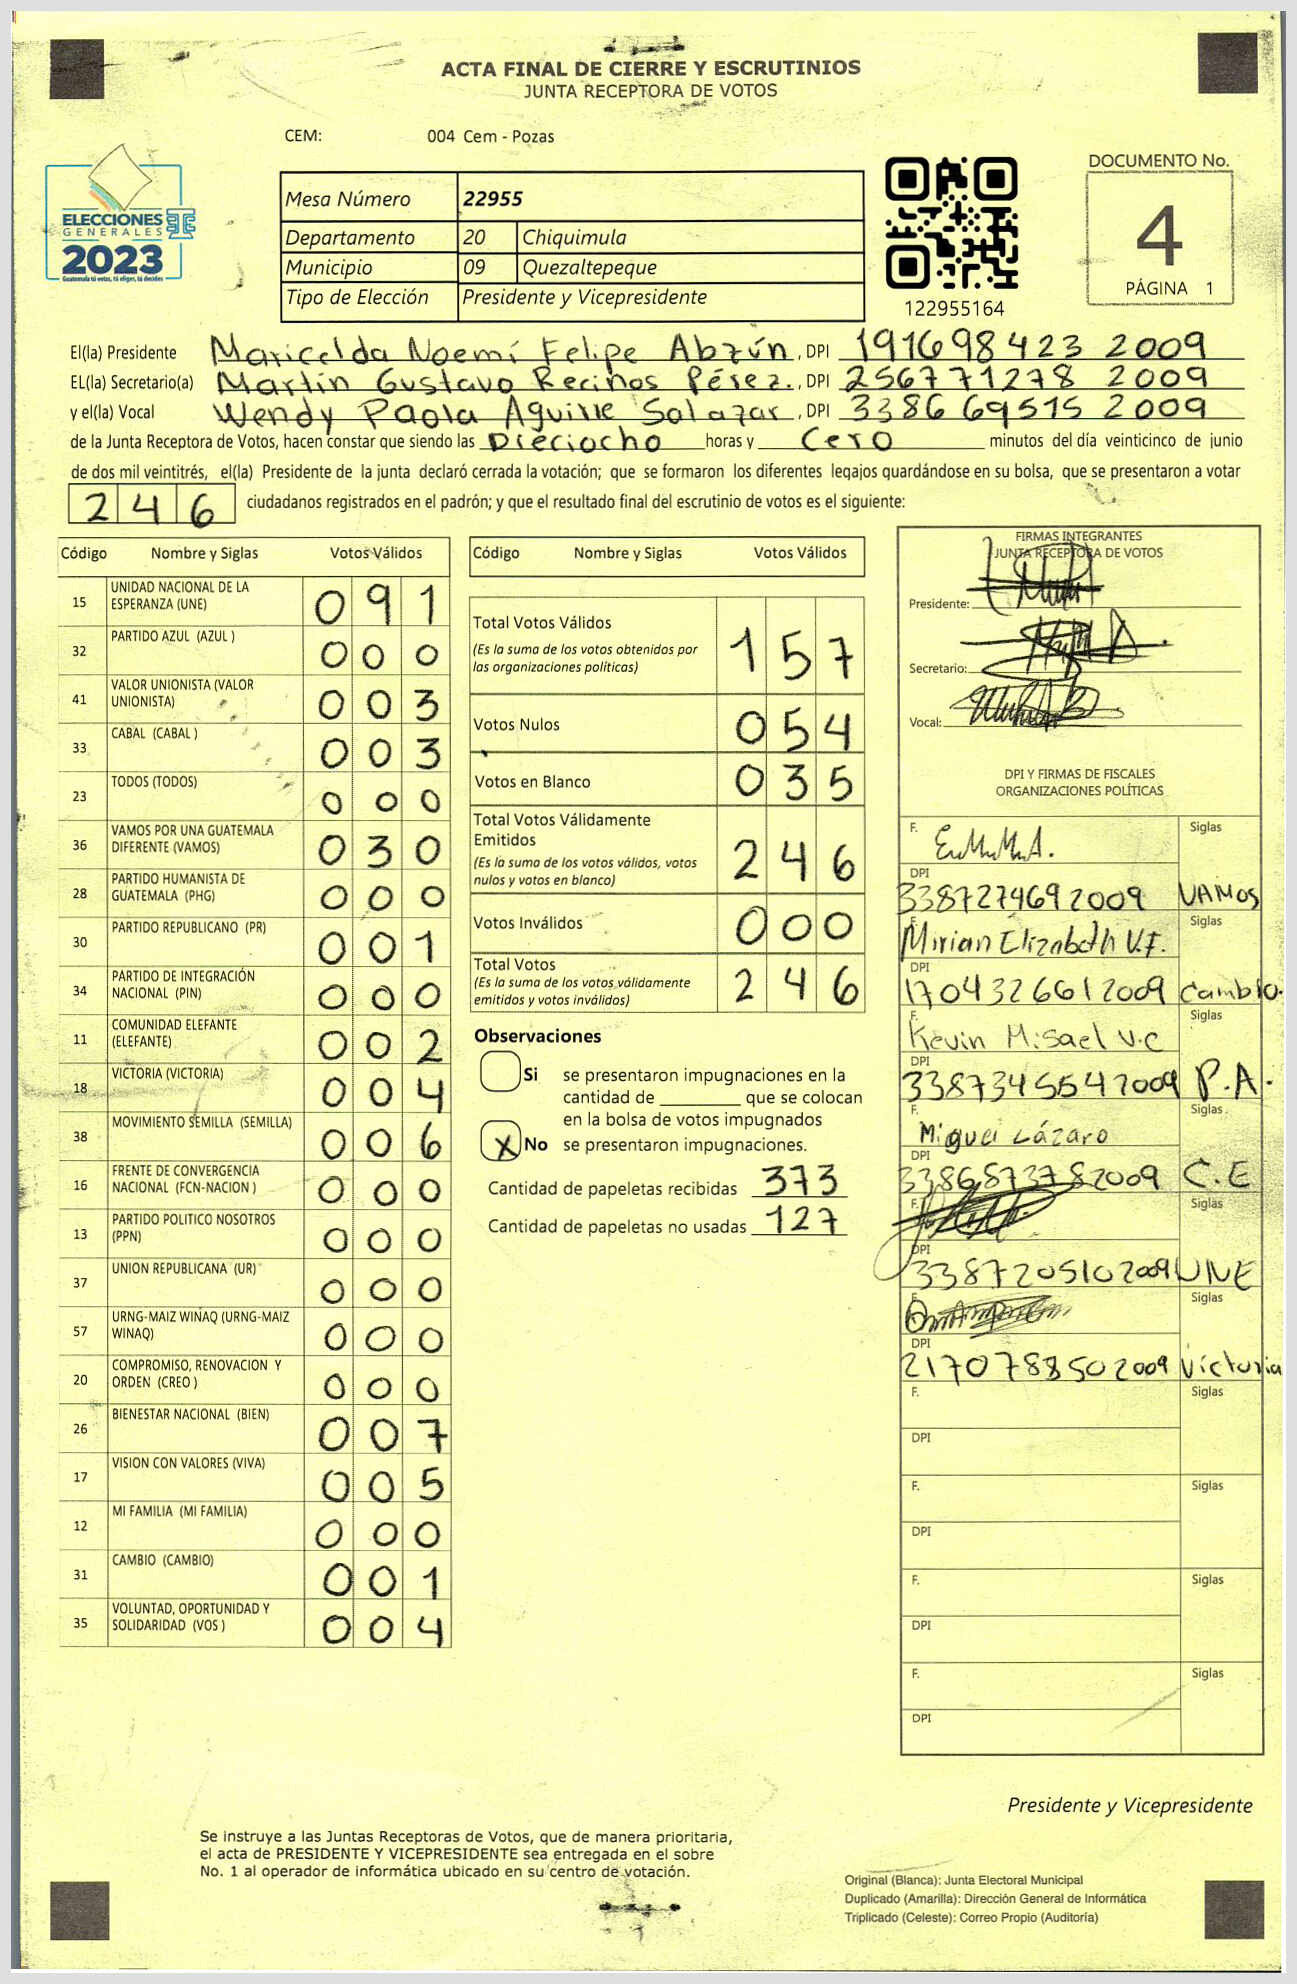 ACTA FINAL DE CIERRE Y ESCRUTINIOS
JUNTA RECEPTORA DE VOTOS
CEM: 004 Cem - Pozas
ELECCIONES
GENERALES
2023
Guatemala tú votas, tú eliges, tú decides
Mesa Número 22955
Departamento 20 Chiquimula
Municipio 09 Quezaltepeque
Tipo de Elección Presidente y Vicepresidente
122955164
DOCUMENTO No.
4
PÁGINA 1
El(la) Presidente Maricelda Noemí Felipe Abzún, DPI 191698423 2009
EL(la) Secretario(a) Martín Gustavo Recinos Pérez., DPI 256771278 2009
y el(la) Vocal Wendy Paola Aguirre Salazar, DPI 3386 69515 2009
de la Junta Receptora de Votos, hacen constar que siendo las Dieciocho horas y Cero minutos del día veinticinco de junio
de dos mil veintitrés, el(la) Presidente de la junta declaró cerrada la votación; que se formaron los diferentes legajos guardándose en su bolsa, que se presentaron a votar
246 ciudadanos registrados en el padrón; y que el resultado final del escrutinio de votos es el siguiente:
Código Nombre y Siglas Votos Válidos
15 UNIDAD NACIONAL DE LA ESPERANZA (UNE) 091
32 PARTIDO AZUL (AZUL ) 000
41 VALOR UNIONISTA (VALOR UNIONISTA) 003
33 CABAL (CABAL ) 003
23 TODOS (TODOS) 000
36 VAMOS POR UNA GUATEMALA DIFERENTE (VAMOS) 030
28 PARTIDO HUMANISTA DE GUATEMALA (PHG) 000
30 PARTIDO REPUBLICANO (PR) 001
34 PARTIDO DE INTEGRACIÓN NACIONAL (PIN) 000
11 COMUNIDAD ELEFANTE (ELEFANTE) 002
18 VICTORIA (VICTORIA) 004
38 MOVIMIENTO SEMILLA (SEMILLA) 006
16 FRENTE DE CONVERGENCIA NACIONAL (FCN-NACION ) 000
13 PARTIDO POLITICO NOSOTROS (PPN) 000
37 UNION REPUBLICANA (UR) 000
57 URNG-MAIZ WINAQ (URNG-MAIZ WINAQ) 000
20 COMPROMISO, RENOVACION Y ORDEN (CREO ) 000
26 BIENESTAR NACIONAL (BIEN) 007
17 VISION CON VALORES (VIVA) 005
12 MI FAMILIA (MI FAMILIA) 000
31 CAMBIO (CAMBIO) 001
35 VOLUNTAD, OPORTUNIDAD Y SOLIDARIDAD (VOS ) 004
Código Nombre y Siglas Votos Válidos
Total Votos Válidos 157
(Es la suma de los votos obtenidos por
las organizaciones políticas)
Votos Nulos 054
Votos en Blanco 035
Total Votos Válidamente
Emitidos 246
(Es la suma de los votos válidos, votos
nulos y votos en blanco)
Votos Inválidos 000
Total Votos 246
(Es la suma de los votos válidamente
emitidos y votos inválidos)
Observaciones
Si se presentaron impugnaciones en la
cantidad de ________ que se colocan
en la bolsa de votos impugnados
X No se presentaron impugnaciones.
Cantidad de papeletas recibidas 373
Cantidad de papeletas no usadas 127
FIRMAS INTEGRANTES
JUNTA RECEPTORA DE VOTOS
Presidente:
Secretario:
Vocal:
DPI Y FIRMAS DE FISCALES
ORGANIZACIONES POLÍTICAS
F. Siglas
DPI
338727469 2009 VAMOS
F. Mirian Elizabeth V.F. Siglas
DPI
170432661 2009 Cambio.
F. Kevin Misael V.C Siglas
DPI
338734554 2009 P.A.
F. Miguel Lázaro Siglas
DPI
338687378 2009 C.E
F. Siglas
DPI
338720510 2009 UNE
F. Siglas
DPI
217078850 2009 Victoria
F. Siglas
DPI
F. Siglas
DPI
F. Siglas
DPI
F. Siglas
DPI
Presidente y Vicepresidente
Se instruye a las Juntas Receptoras de Votos, que de manera prioritaria,
el acta de PRESIDENTE Y VICEPRESIDENTE sea entregada en el sobre
No. 1 al operador de informática ubicado en su centro de votación.
Original (Blanca): Junta Electoral Municipal
Duplicado (Amarilla): Dirección General de Informática
Triplicado (Celeste): Correo Propio (Auditoría)